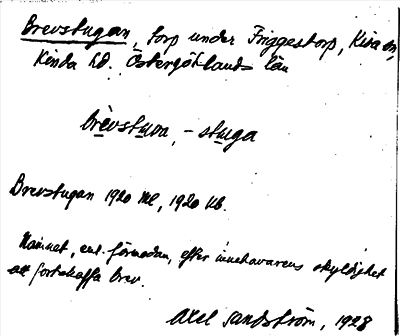 Brevstugan, torp under Friggestorp, Kisa sn,
Kinda hd. Östergötlands län
brèvstuva, -stuga
Brevstugan 1920 ml, 1920 kb.
Namnet, enl. förmodan, efter innehavarens skyldighet
att fortskaffa brev.
Axel Sandström, 1928